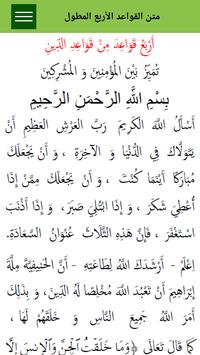 متن القواعد الأربع المطول
أَرْبَعُ قَوَاعِدَ مِنْ قَوَاعِدِ الدِّينِ
تُمَيِّزُ بَيْنَ الْمُؤْمِنِينَ وَ الْمُشْرِكِينَ
بِسْمِ اللَّهِ الرَّحْمَنِ الرَّحِيمِ
أَسْأَلُ اللَّهَ الْكَرِيمَ رَبَّ الْعَرْشِ الْعَظِيمِ أَنْ
يَتَوَلَّاكَ فِي الدُّنْيَا وَ الآخِرَةِ ، وَ أَنْ يَجْعَلَكَ
مُبَارَكًا أَيْنَمَا كُنْتَ ، وَ أَنْ يَجْعَلَكَ مِمَّنْ إِذَا
أُعْطِيَ شَكَرَ ، وَ إِذَا ابْتُلِيَ صَبَرَ ، وَ إِذَا أَذْنَبَ
اسْتَغْفَرَ ، فَإِنَّ هَذِهِ الثَّلَاثَ عُنْوَانُ السَّعَادَةِ.
اِعْلَمْ - أَرْشَدَكَ اللَّهُ لِطَاعَتِهِ - أَنَّ الْحَنِيفِيَّةَ مِلَّةَ
إِبْرَاهِيمَ أَنْ تَعْبُدَ اللَّهَ مُخْلِصًا لَهُ الدِّينَ، وَ بِذَلِكَ
أَمَرَ اللَّهُ جَمِيعَ النَّاسِ وَ خَلَقَهُمْ لَهَا ،
كَمَا قَالَ تَعَالَى ﴿وَمَا خَلَقْتُ الْجِنَّ وَالْإِنسَ إِلَّا